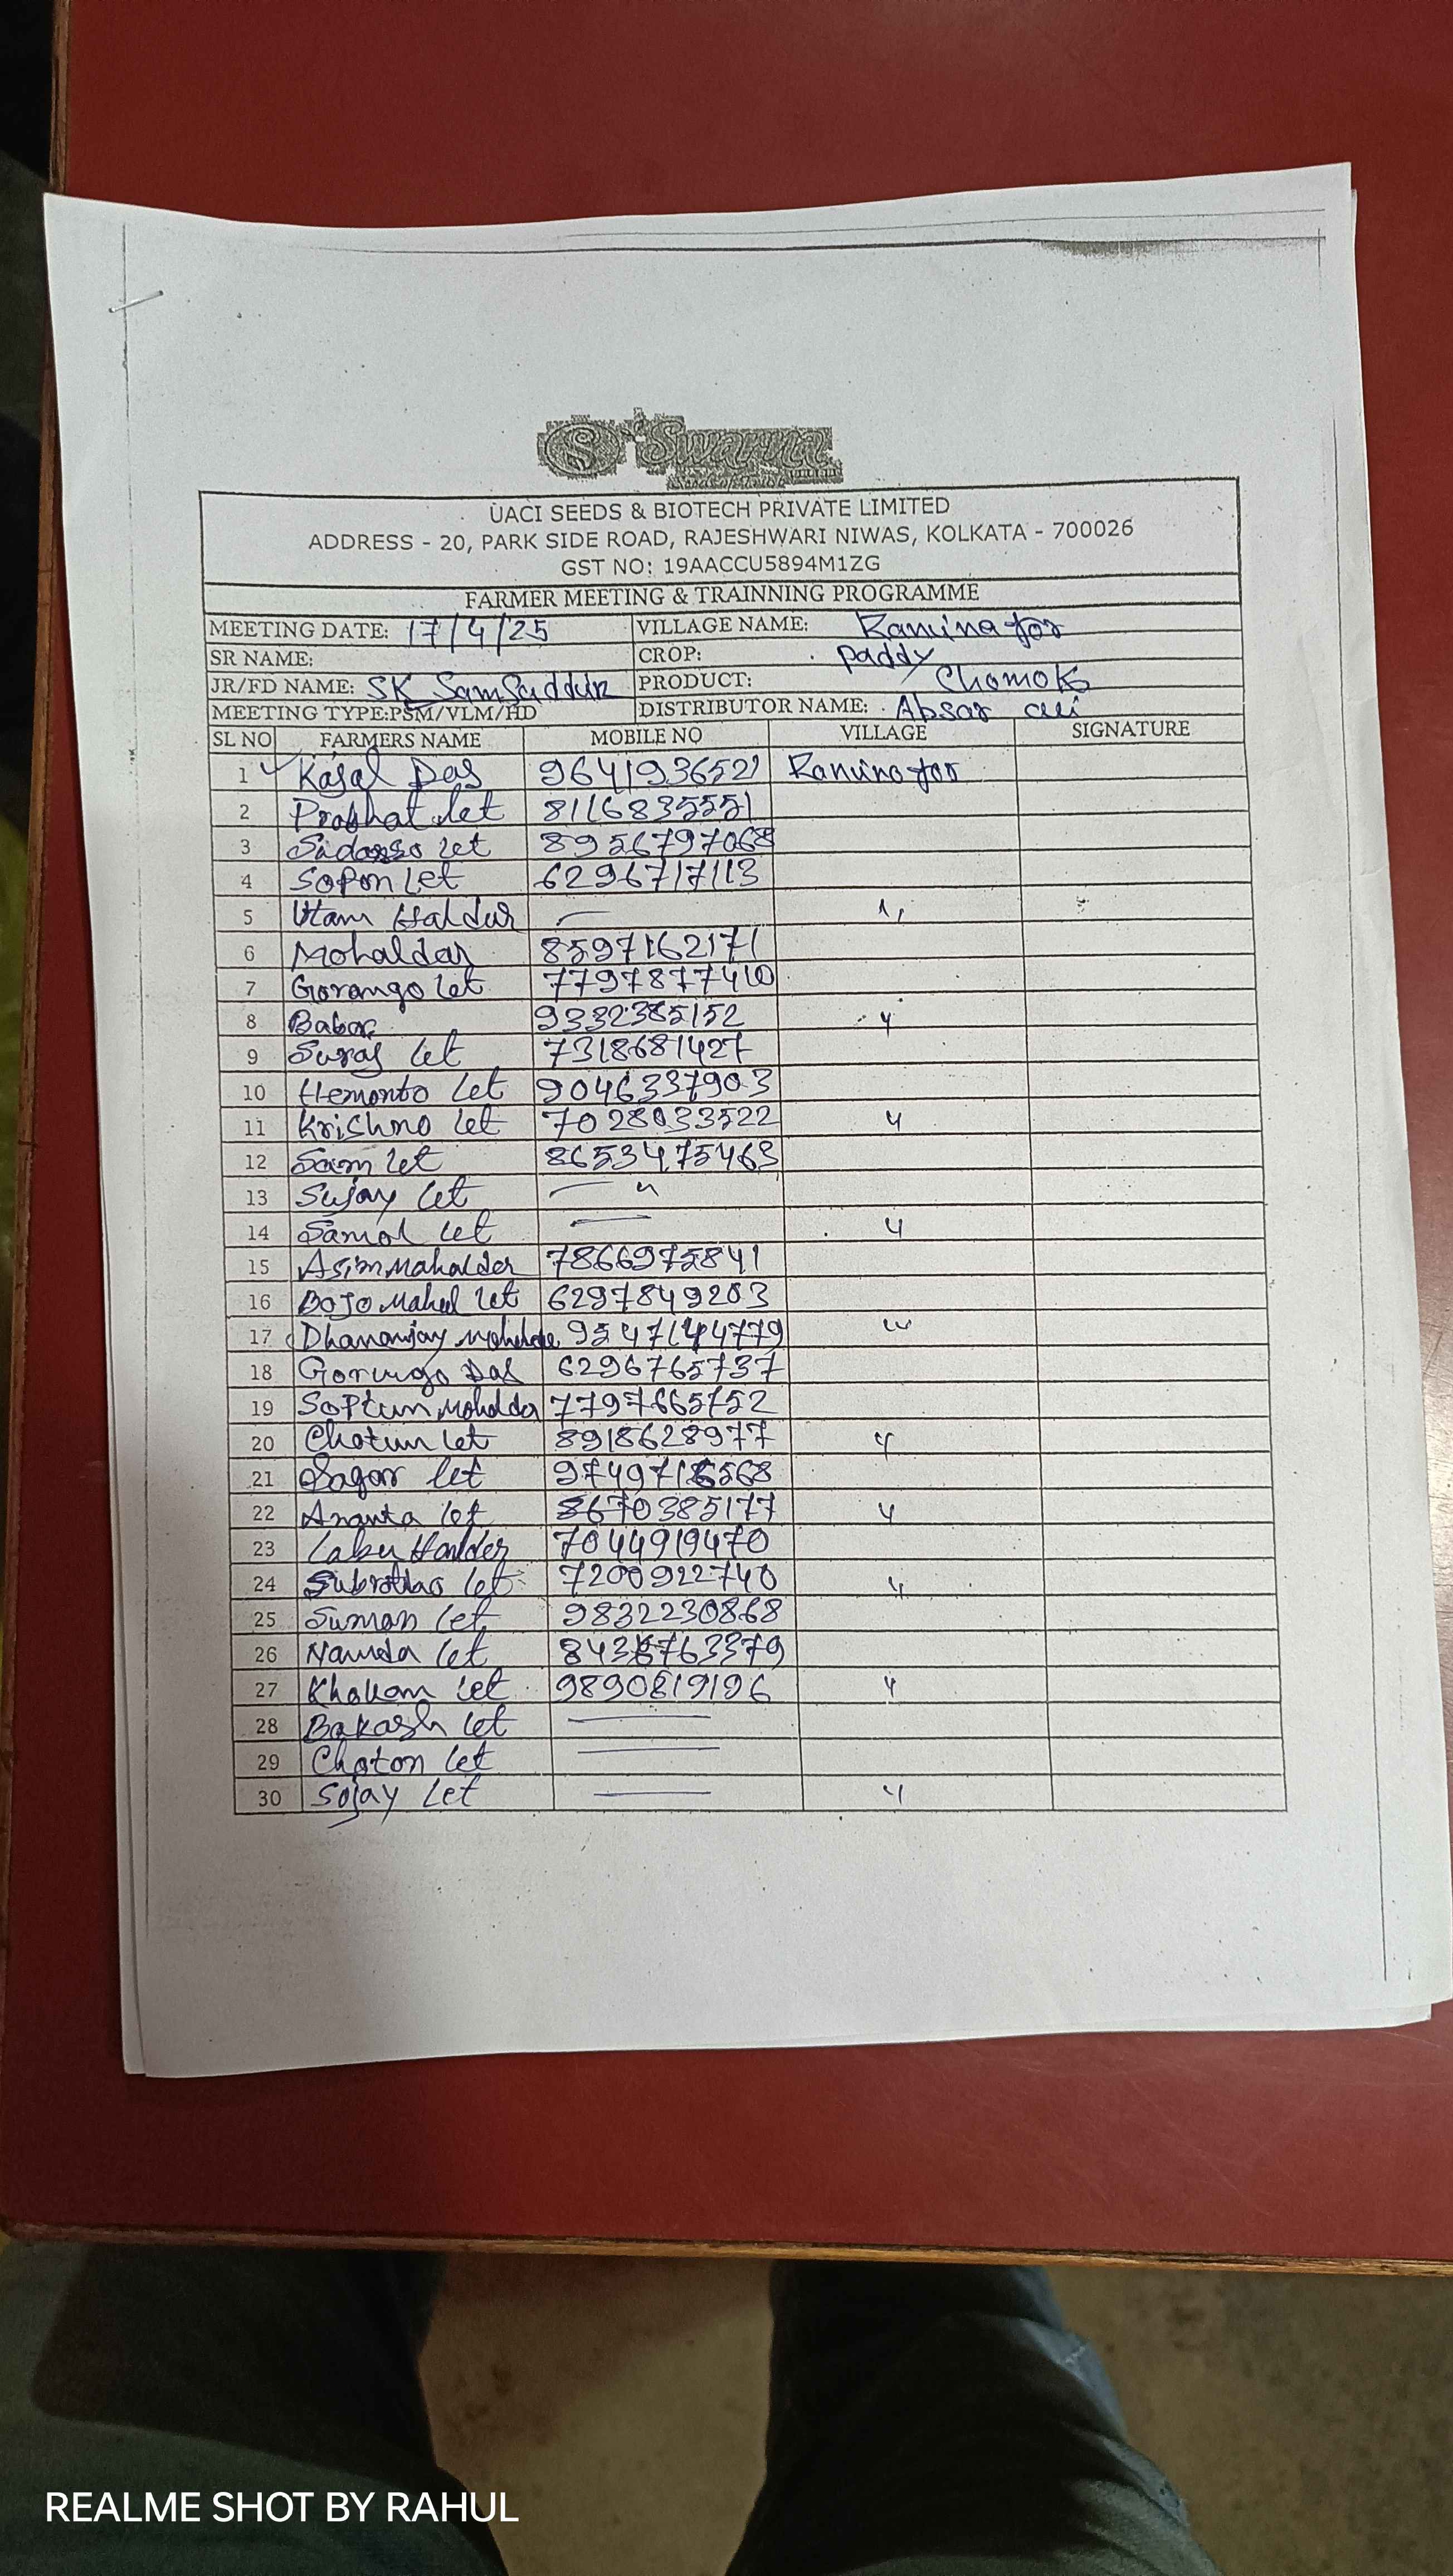 Swarna
UACI SEEDS & BIOTECH PRIVATE LIMITED
ADDRESS - 20, PARK SIDE ROAD, RAJESHWARI NIWAS, KOLKATA - 700026
GST NO: 19AACCU5894M1ZG
FARMER MEETING & TRAINNING PROGRAMME
MEETING DATE: 17/4/25 VILLAGE NAME:
SR NAME: CROP: Paddy
JR/FD NAME: SK Samsuddin PRODUCT: Chomok
MEETING TYPE:PSM/VLM/HD DISTRIBUTOR NAME: Absar Ali
SL NO FARMERS NAME MOBILE NO VILLAGE SIGNATURE
1 Kajal Das 9641936521
2 Prabhat Let 8116835551
3 Let 8956797068
4 Sopon Let 6296717113
5 Utam Haldar —
6 Mohaldar 8597162171
7 Gorango Let 7797877410
8 Babor 9332385152 "
9 Suraj Let 7318681427
10 Hemonto Let 9046337903
11 Krishno Let 7028033522 "
12 Let 8653475463
13 Sujay Let — "
14 Samol Let — "
15 Asim Mahaldar 7866975841
16 Let 6297849203
17 Dhananjay 9547144779 "
18 Das 6296765737
19 7797665152
20 Let 8918628977 "
21 Sagar Let
22 Ananta Let 8670385177 "
23 Labu Halder 7044919470
24 Let 7200922740 "
25 Suman Let 9832230868
26 Nanda Let
27 Khokon Let 9890819196 "
28 Bakash Let —
29 Choton Let —
30 Sojay Let — "
REALME SHOT BY RAHUL